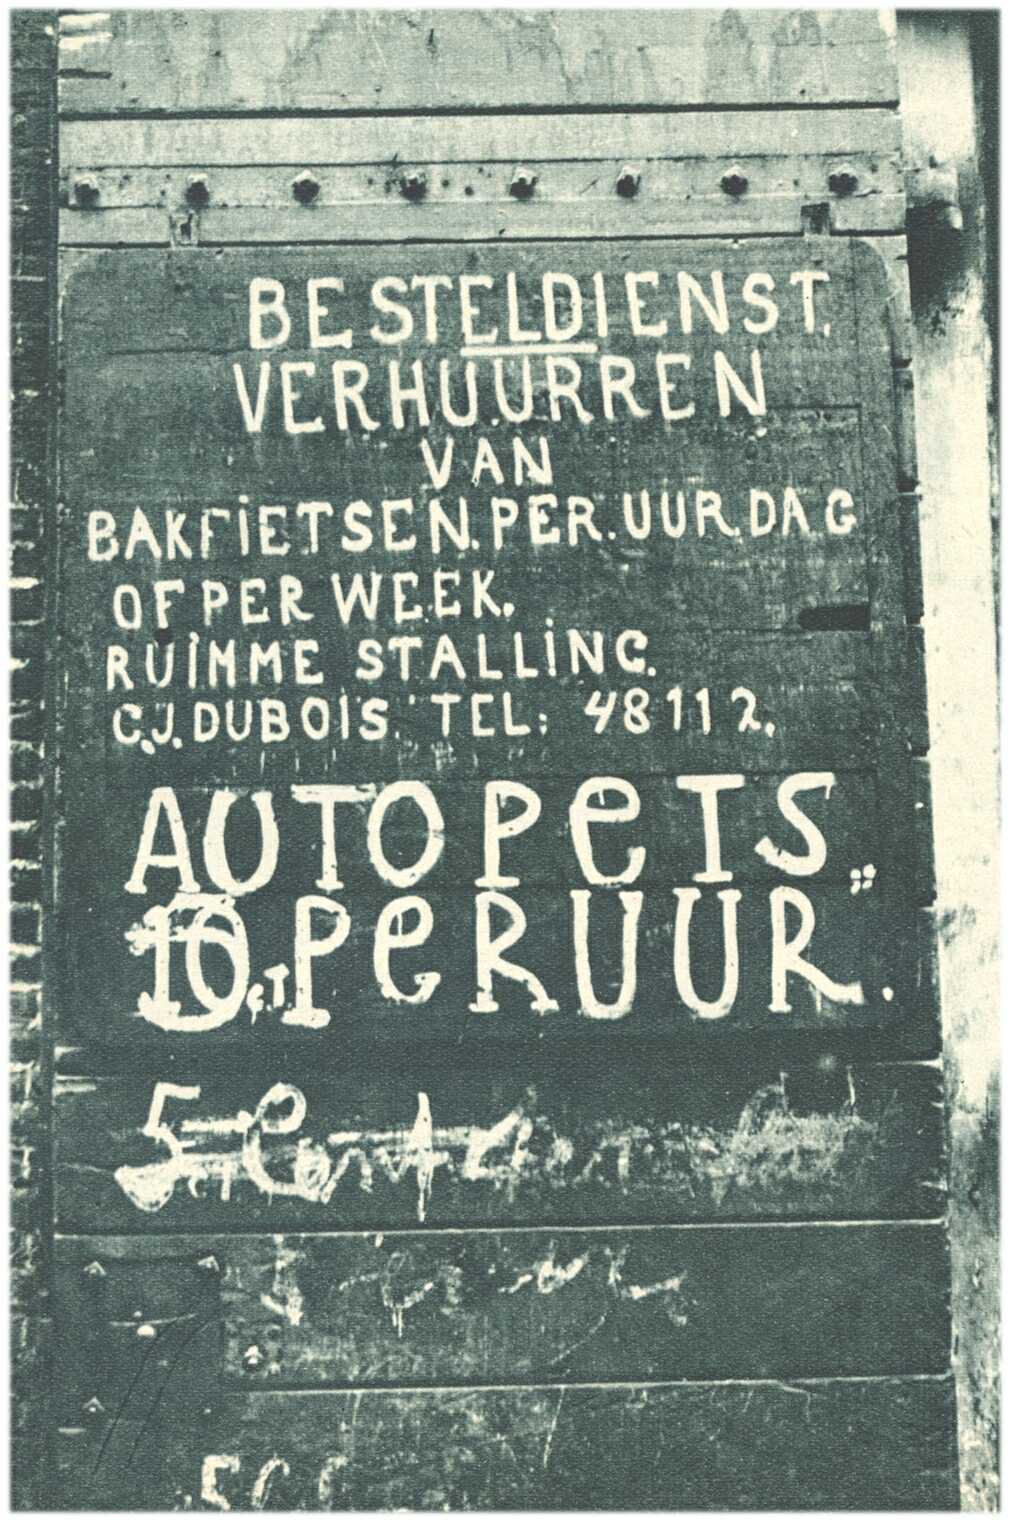 BESTELDIENST.
VERHUURREN
VAN
BAKFIETSEN.PER.UUR.DAG
OF PER WEEK.
RUIMME STALLING.
C.J.DUBOIS. TEL: 48112.
AUTOPETS
10 CT. PER UUR.